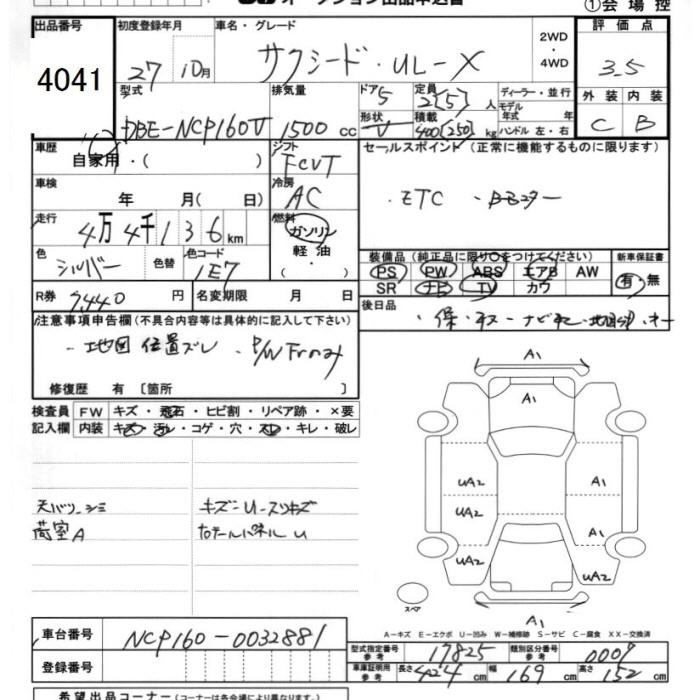 ①会 場 控
出品番号
4041
初度登録年月
27 10月
車名・グレード
サクシード・UL-X
2WD
・
4WD
評 価 点
3.5
型式
DBE-NCP160V
排気量
1500 cc
ドア 5
形状 V
定員 2(5) 人
積載 400(250) kg
ディーラー・並 行
モデル
年式 年
ハンドル 左・右
外 装 内 装
C B
車歴
自家用・( )
シフト
FCVT
車検
年 月( 日)
冷房
AC
走行
4万 4千 1 3 6 km
燃料
ガソリン
軽 油
( ・ )
色
シルバー
色替
色コード
1E7
R券 7,440 円
名変期限 月 日
セールスポイント (正常に機能するものに限ります)
・ETC
装備品 (純正品に限り○をつけてください)
PS PW ABS エアB AW
SR ナビ TV カワ
新車保証書
有・無
後日品
注意事項申告欄(不具合内容等は具体的に記入して下さい)
・地図 位置ズレ ・P/W Frのみ
修復歴 有 〔箇所 〕
検査員 FW キズ・飛石・ヒビ割・リペア跡・×要
記入欄 内装 キズ・汚レ・コゲ・穴・スレ・キレ・破レ
天バリシミ
荷室A
キズ-U-スリキズ
テールパネルU
A1
A1
UA2
UA2
UA2
A1
A1
UA2
A1
スペア
A-キズ E-エクボ U-凹み W-補修跡 S-サビ C-腐食 XX-交換済
車台番号 NCP160-0032881
登録番号
型式指定番号
参 考
17825
類別区分番号
参 考
0007
車庫証明用
参 考
長さ 424 cm 幅 169 cm 高さ 152 cm
希望出品コーナー (コーナーは各会場により異なります)